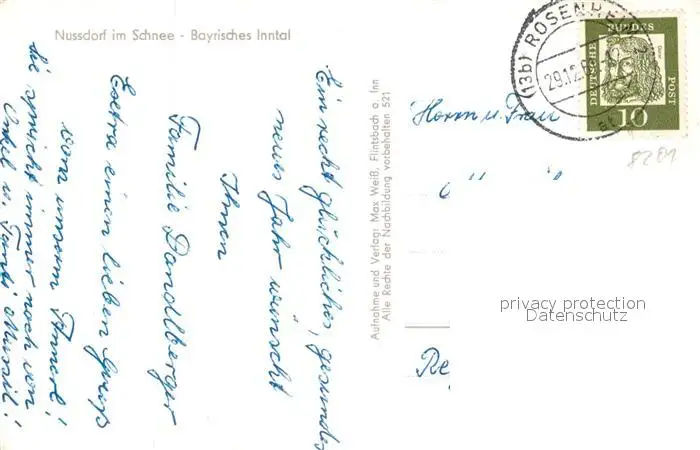 Nussdorf im Schnee - Bayrisches Inntal
Ein recht glückliches, gesundes
neues Jahr wünscht
Ihnen
Familie Dandlberger
Extra einen lieben Gruß
von unserm Annerl!
die spricht immer noch von
Onkel u. Tante
Aufnahme und Verlag: Max Weiß, Flintsbach a. Inn
Alle Rechte der Nachbildung vorbehalten 521
(13b) ROSENHEIM
29.12.
DEUTSCHE
BUNDES
POST
Dürer
10
8201
Herrn u. Frau
privacy protection
Datenschutz
Re